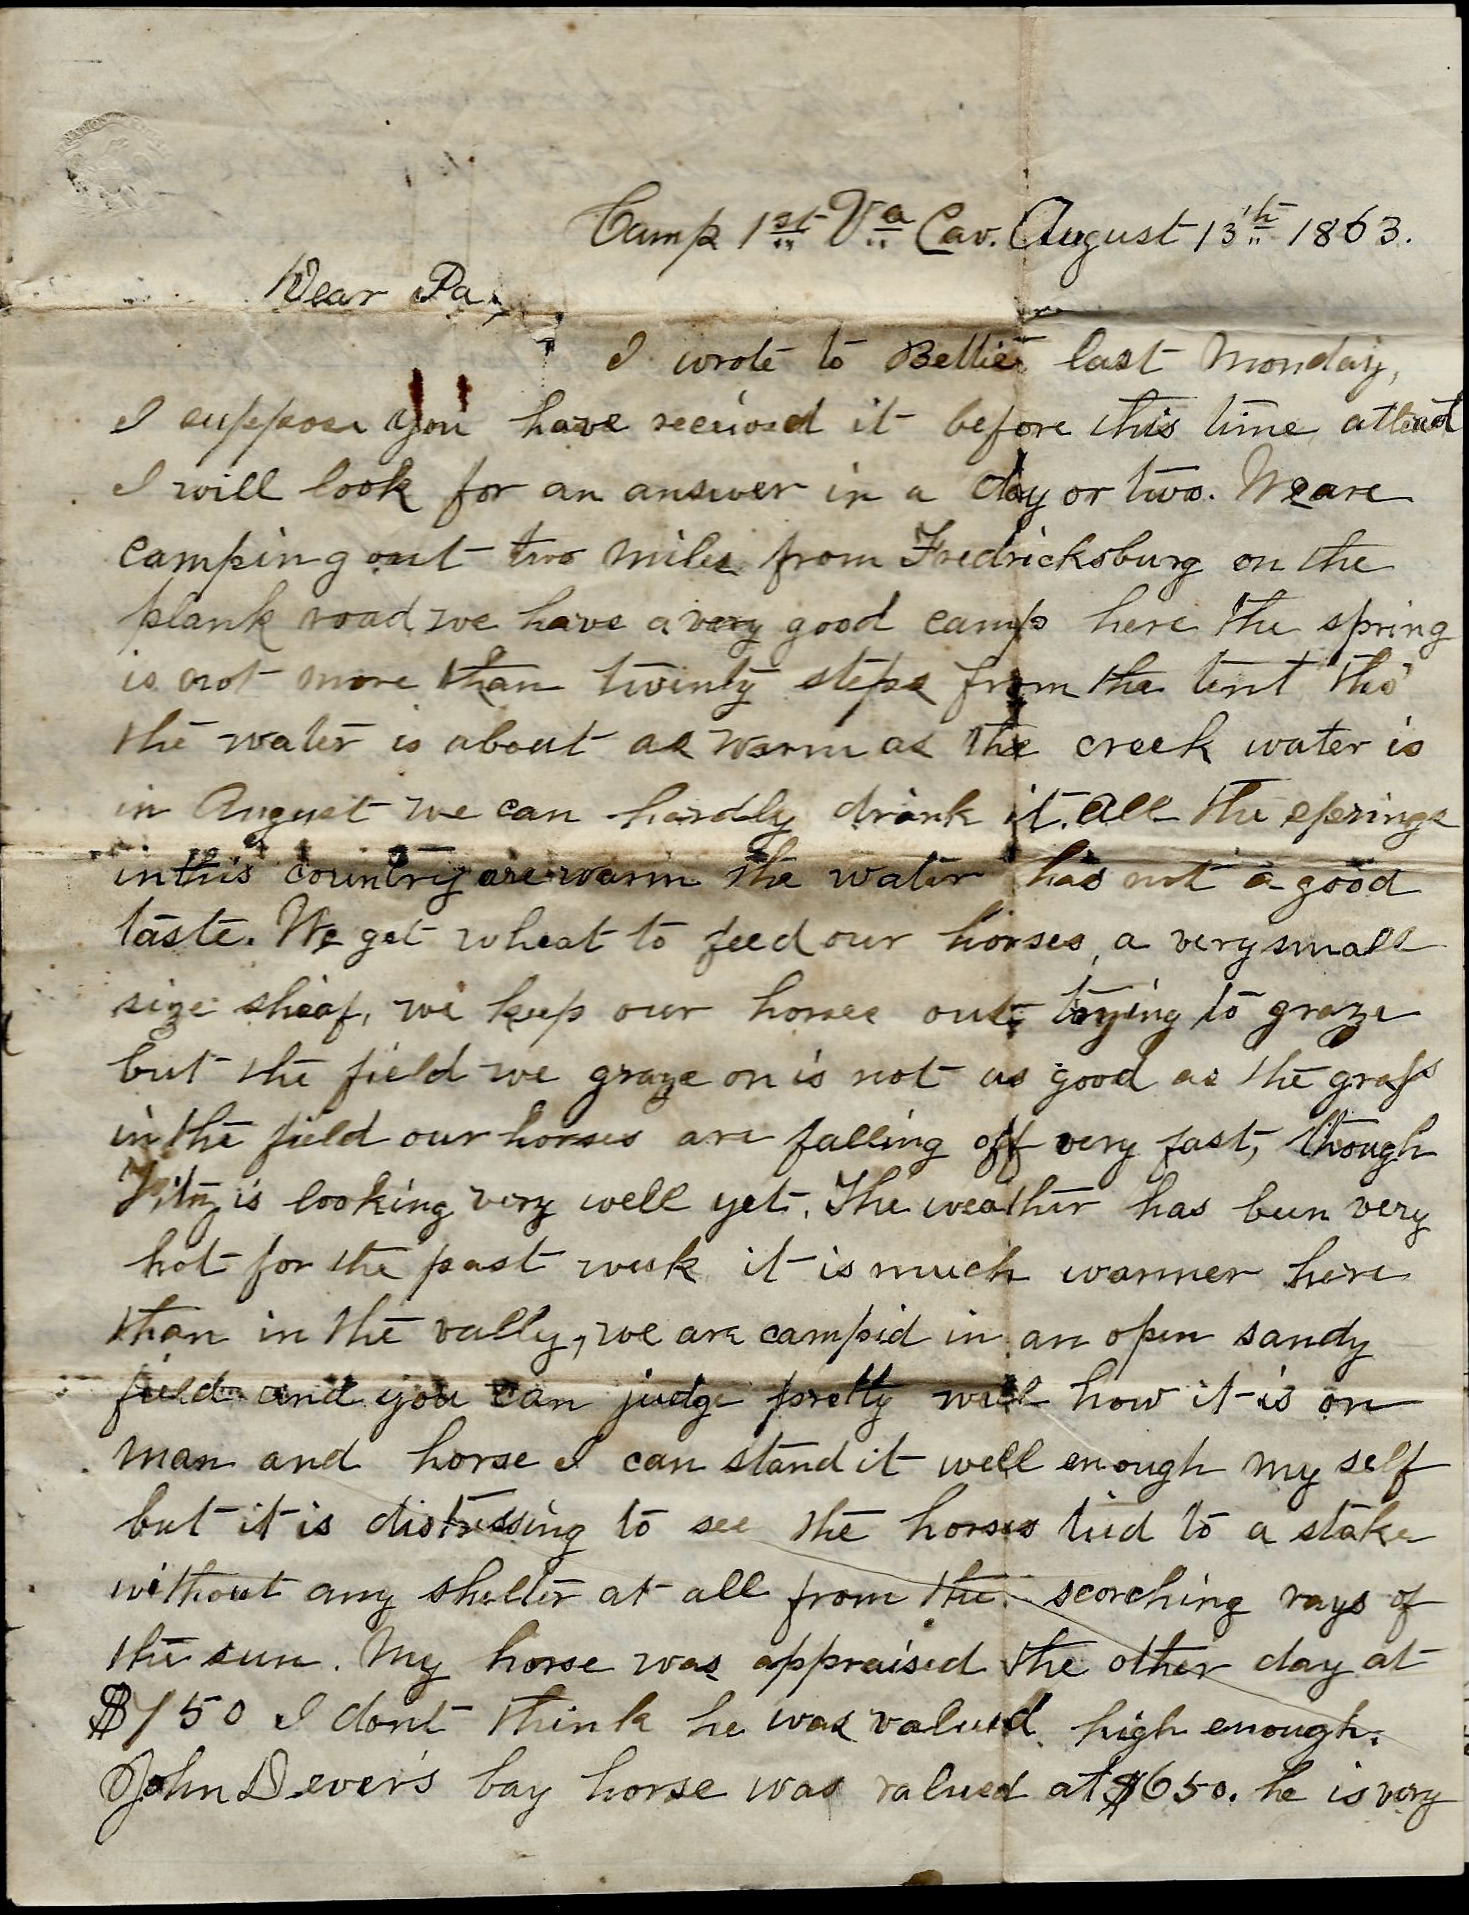 Camp 1st Va Cav. August 13th 1863.
Dear Pa,
I wrote to Bettie last Monday,
I suppose you have received it before this time at least
I will look for an answer in a day or two. We are
camping out two miles from Fredricksburg on the
plank road we have a very good camp here the spring
is not more than twinty steps from the tent tho'
the water is about as warm as the creek water is
in August we can hardly drink it. All the springs
in this country are warm the water has not a good
taste. We get wheat to feed our horses, a very small
size sheaf, we keep our horses out trying to graze
but the field we graze on is not as good as the grass
in the field our horses are falling off very fast, though
is looking very well yet. The weather has been very
hot for the past week it is much warmer here
than in the vally, we are campid in an open sandy
field and you can judge pretty well how it is on
man and horse I can stand it well enough my self
but it is distressing to see the horses tied to a stake
without any shelter at all from the scorching rays of
the sun. My horse was appraised the other day at
$750 I dont think he was valued high enough.
John Dever's bay horse was valued at $650. he is very